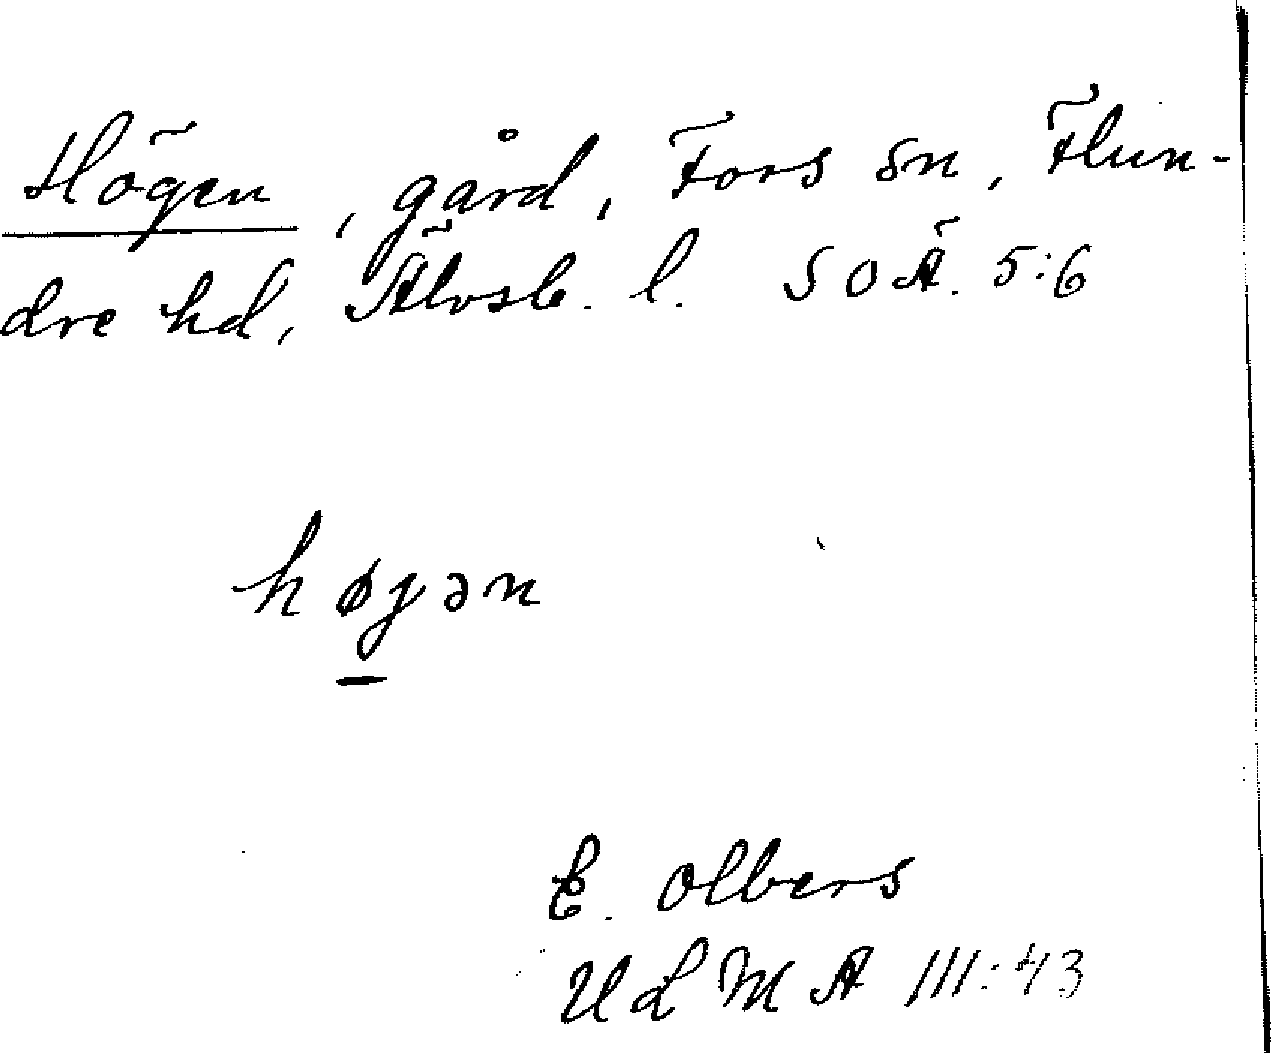 Högen, gård, Fors sn, Flun-
dre hd, Älvsb. l. SOÄ. 5:6
høyən
E. Olbers
ULMA III:43